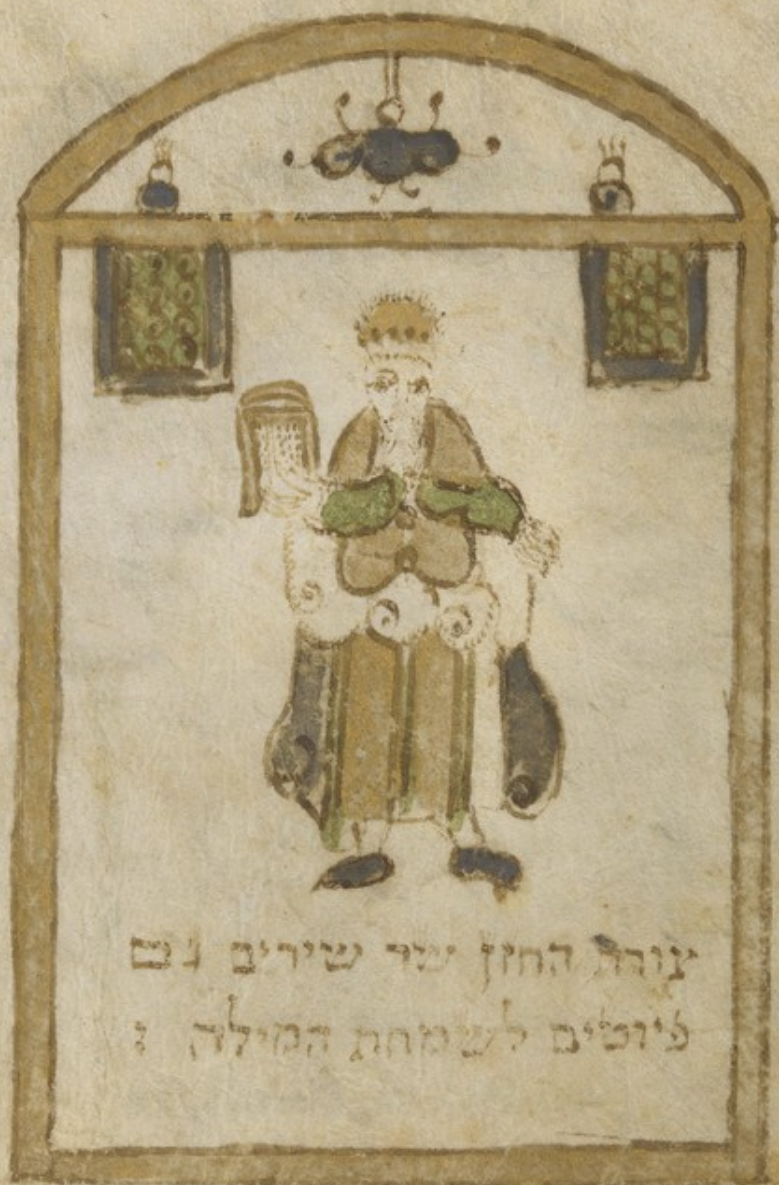 צורת החזן שר שירים גם
פיוטים לשמחת המילה :